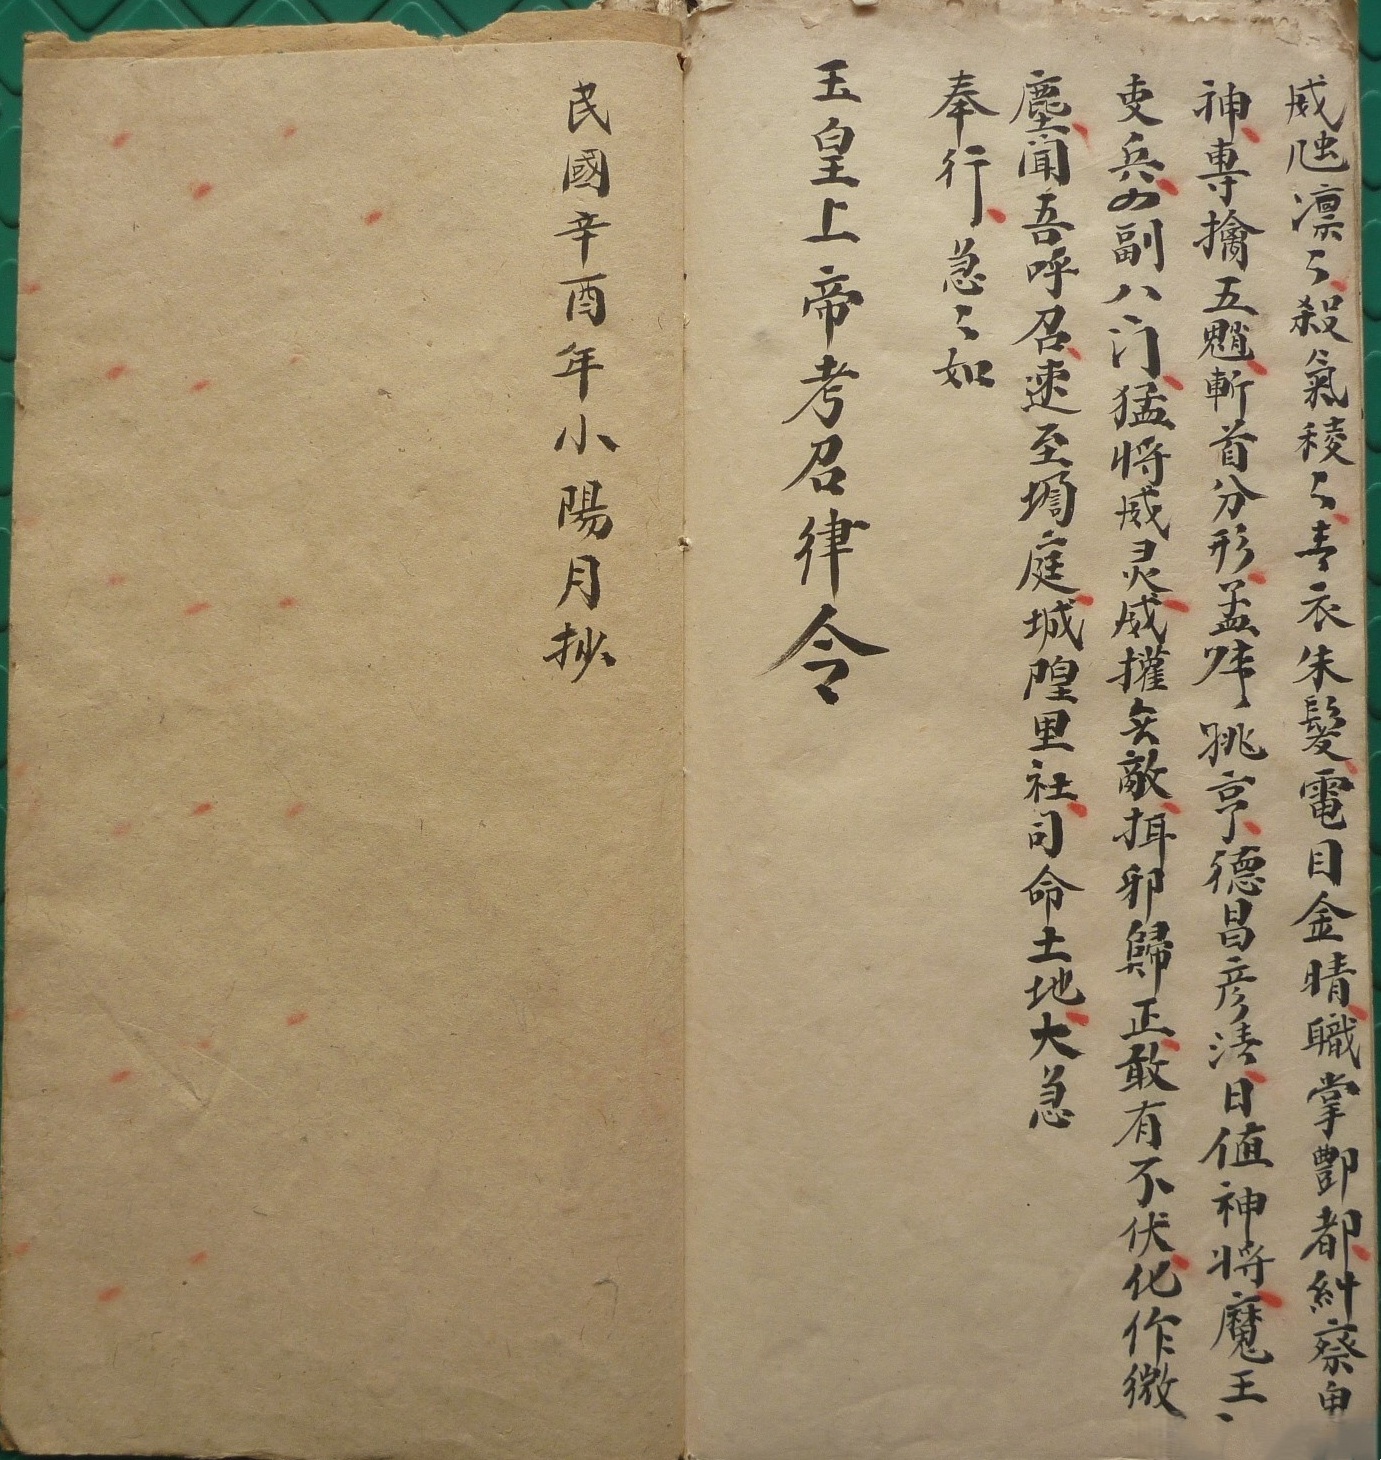 威凛〻殺氣稜〻青衣朱髮電目金睛職掌酆都糾察
神專擒五魈斬首分形孟 姚亨德昌彥清日值神將魔王
吏兵四副八门猛將威灵威權无敵摄邪歸正敢有不伏化作微
塵聞吾呼召速至壇庭城隍里社司命土地大急
奉行急〻如
玉皇上帝考召律令
民國辛酉年小陽月抄